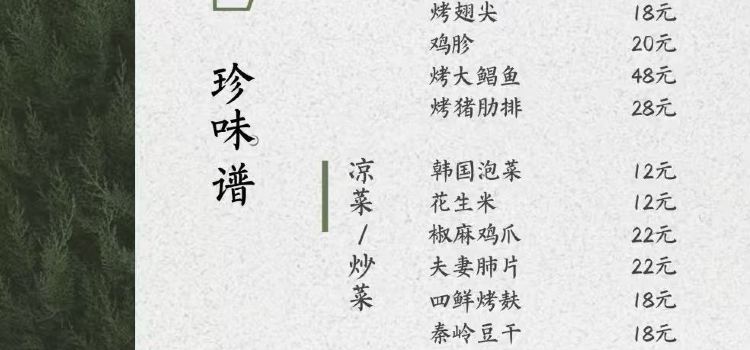 珍味谱
烤翅尖 18元
鸡胗 20元
烤大鲳鱼 48元
烤猪肋排 28元
凉菜/炒菜
韩国泡菜 12元
花生米 12元
椒麻鸡爪 22元
夫妻肺片 22元
四鲜烤麸 18元
秦岭豆干 18元